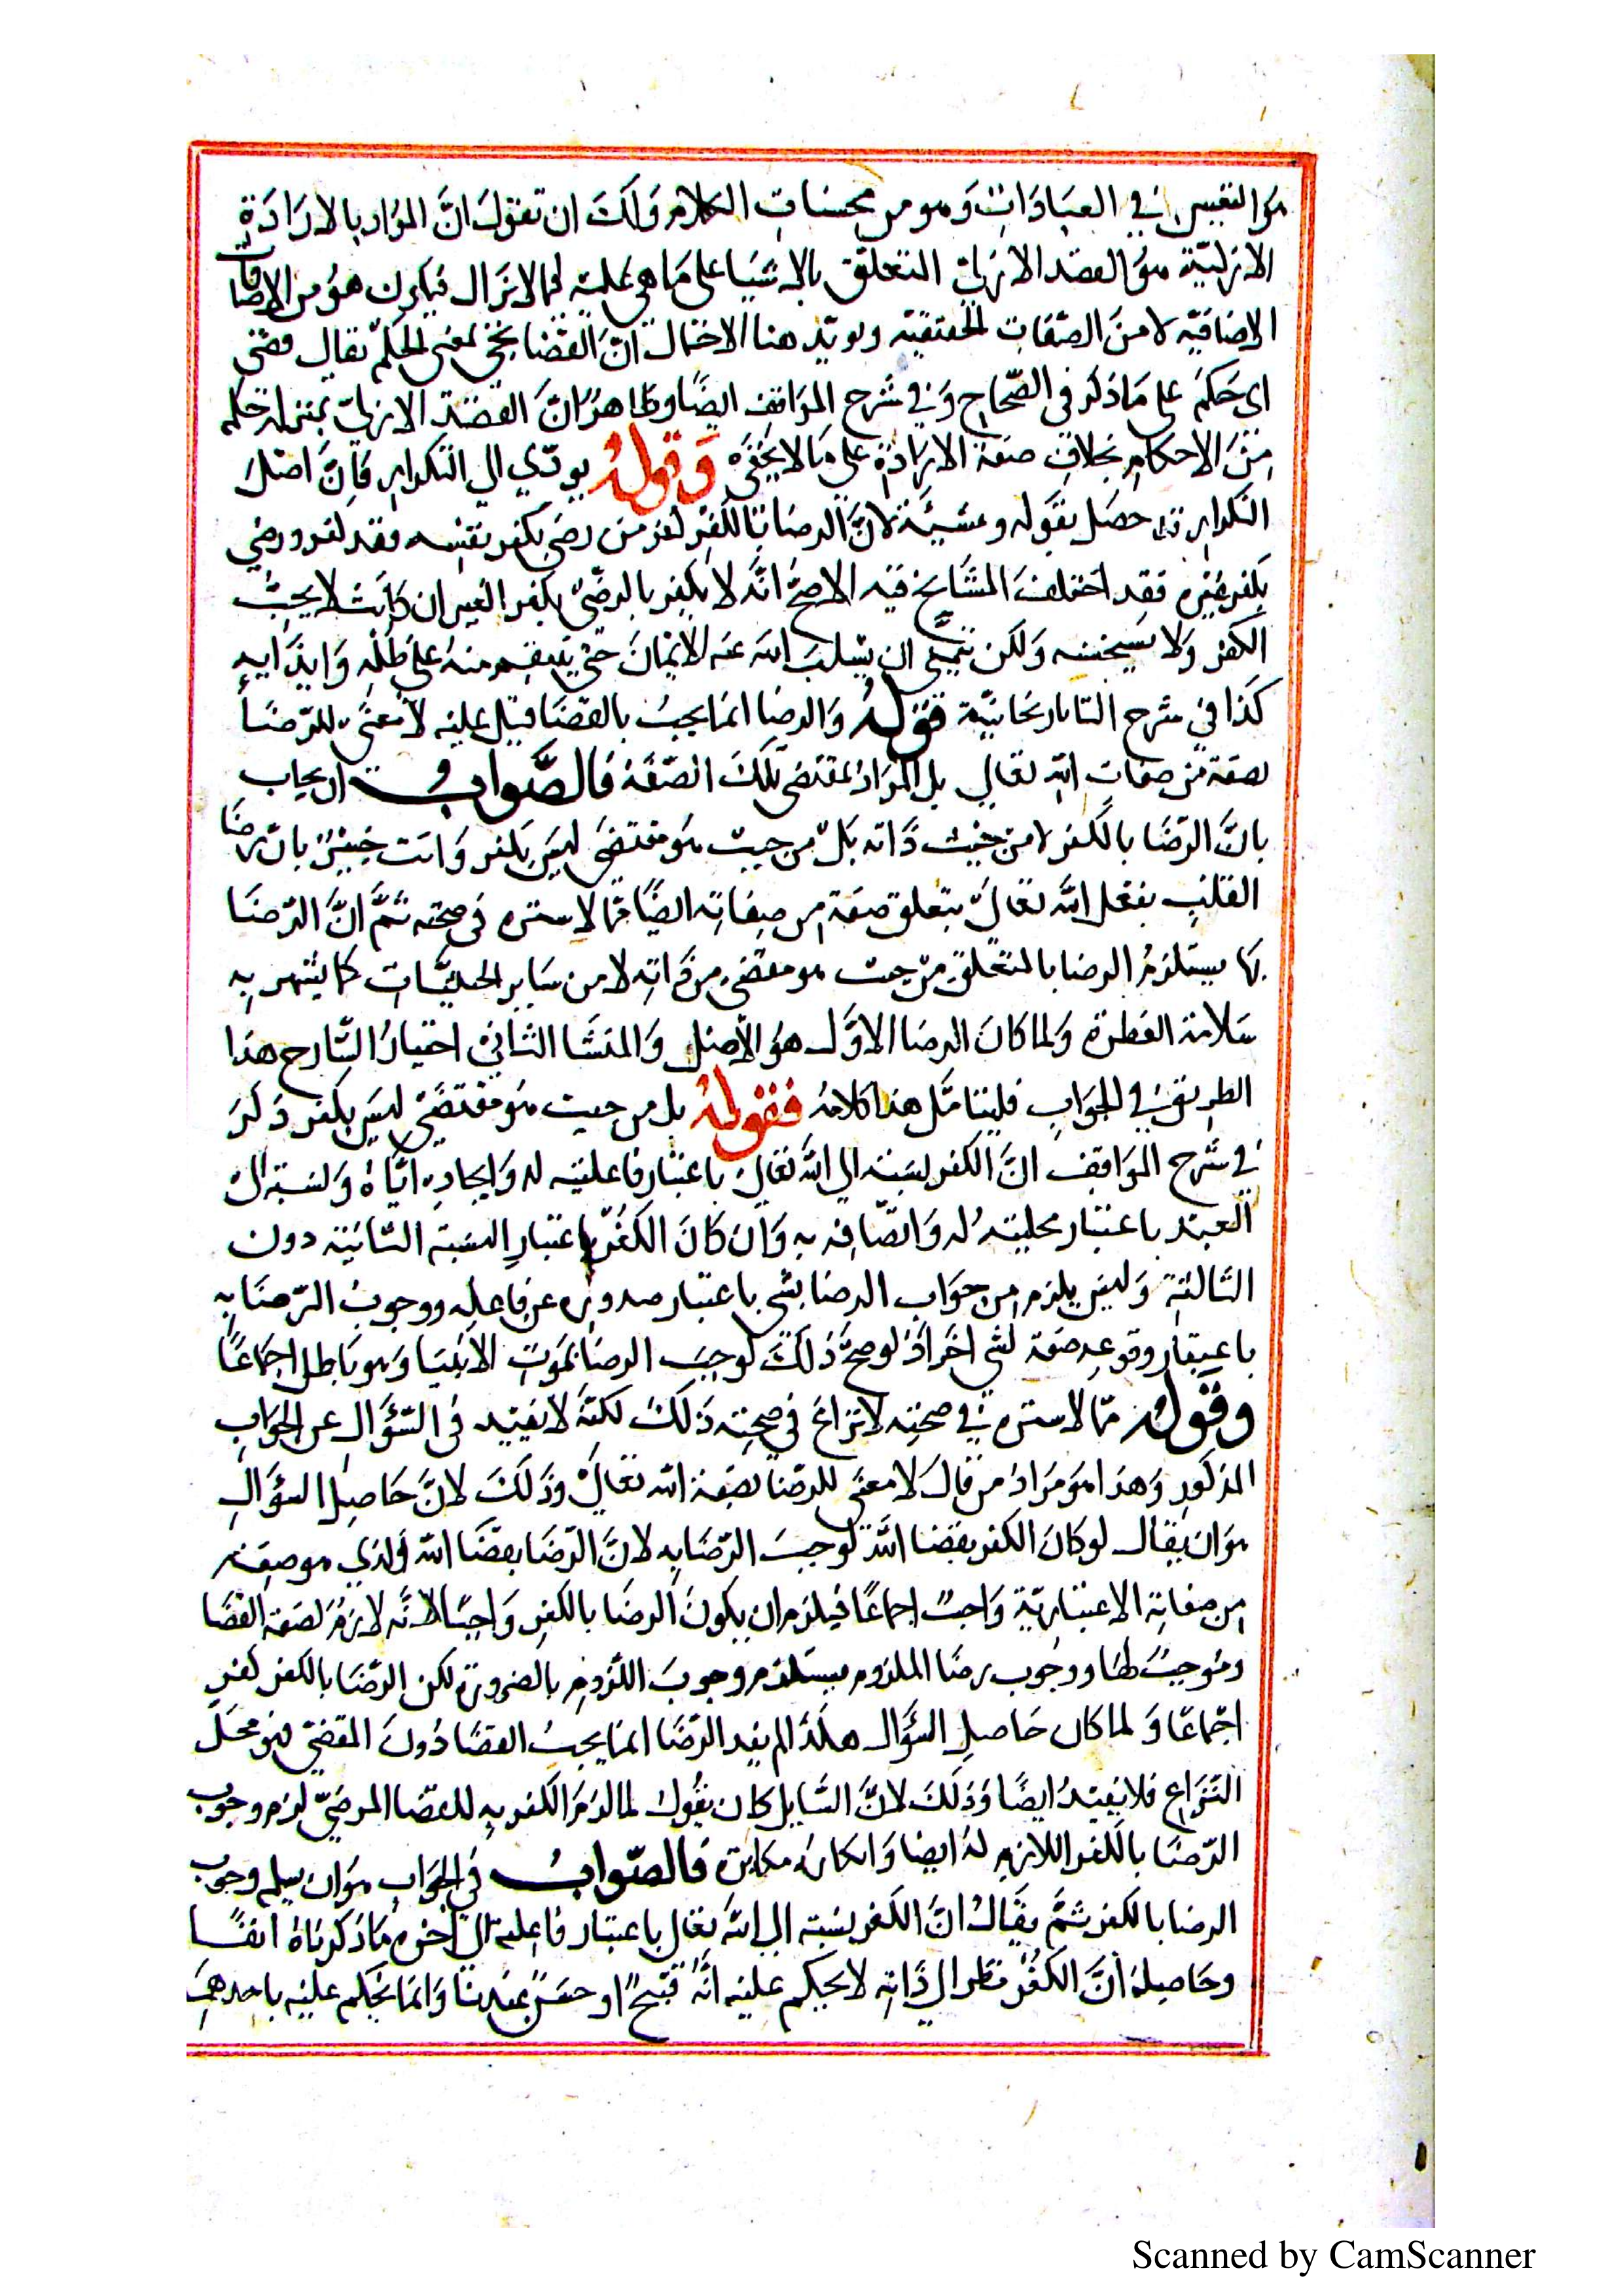 هو التفنن في العبادات وهو من محسنات الكلام ولك ان تقول ان المراد بالارادة
الازلية هو القصد الازلي المتعلق بالاشيا على ما هي عليه فيما لا يزال فيكون هو من الاضافات
الاضافية لا من الصفات الحقيقية ويويد هذا الاحتمال ان القضا يجي بمعنى الحكم يقال قضى
اى حكم على ما ذكر فى الصحاح وفي شرح المواقف ايضا وظاهر ان القصد الازلي بمنزلة حكم
من الاحكام بخلاف صفة الارادة على ما لا يخفى وقوله يودي الي التكرار فان اصل
التكرار قد حصل بقوله ومشيئة لان الرضا بالكفر كفر من رضي بكفر نفسه فقد كفر ورضي
بكفر غيره فقد اختلف المشايخ فيه الاصح انه لا يكفر بالرضى بكفر الغير ان كانت لا يحب
الكفر ولا يستحسنه ولكن يتمنى ان يسلب الله عنه الايمان حتى ينتقم منه على ظلمه وايذايه
كذا في شرح التاتارخانية قوله والرضا انما يجب بالقضا قيل عليه لا معنى للرضا
بصفة من صفات الله تعالي بل المراد المقتضى تلك الصفة فالصواب ان يجاب
بان الرضا بالكفر لا من حيث ذاته بل من حيث هو مقتضى ليس بكفر وانت خبير بان رضا
القلب بفعل الله تعالى بتعلق صفة من صفاته ايضا مما لا سترة فى صحته ثم ان الرضا
بها يستلزم الرضا بالمتعلق من حيث هو مقتضى من ذاته لا من ساير الحيثيات كما يشهد به
سلامة الفطرة ولما كان الرضا الاول هو الاصل والمنشا الثاني اختيار الشارح هذا
الطريق في الجواب فليتامل هذا كلامه فقوله بل من حيث هو مقتضى ليس بكفر ذكر
في شرح المواقف ان الكفر نسبة الي الله تعالى باعتبار فاعليته له وايجاده اياه ونسبة الى
العبد باعتبار محليته له واتصافه به وان كان الكفر باعتبار النسبة الثانية دون
الثالثة وليس يلزم من جواب الرضا بشي باعتبار صدوره عن فاعله ووجوب الرضا به
باعتبار وقوعه صفة لشي اخر اذ لو صح ذلك لوجب الرضا بموت الانبيا وهو باطل اجماعا
وقوله مما لا سترة في صحته لا نزاع في صحته ذلك لكنه لا يفيد فى السؤال عن الجواب
المذكور وهذا هو مراد من قال لا معنى للرضا بصفة الله تعالى وذلك لان حاصل السؤال
هو ان يقال لو كان الكفر بقضا الله لوجب الرضا به لان الرضا بقضا الله الذي هو صفة
من صفاته الاعتبارية واجب اجماعا فيلزم ان يكون الرضا بالكفر واجبا لانه لازم لصفة القضا
وموجب لها ووجوب رضا الملزوم يستلزم وجوب اللزوم بالضرورة لكن الرضا بالكفر كفر
اجماعا ولما كان حاصل السؤال هكذا لم يفد الرضا انما يجب القضا دون المقضى هو محل
النزاع فلا يفيد ايضا وذلك لان السايل كان يقول لما لزم الكفر به للقضا المرضي لزم وجوب
الرضا بالكفر اللازم له ايضا وانكاره مكابرة فالصواب في الجواب هو ان يسلم وجوب
الرضا بالكفر ثم يقال ان الكفر نسبة الى الله تعالى باعتبار فاعليته الى اخره ما ذكرناه انفا
وحاصله ان الكفر نظرا الى ذاته لا يحكم عليه انه قبيح او حسن عندنا وانما يحكم عليه باحدهما
Scanned by CamScanner